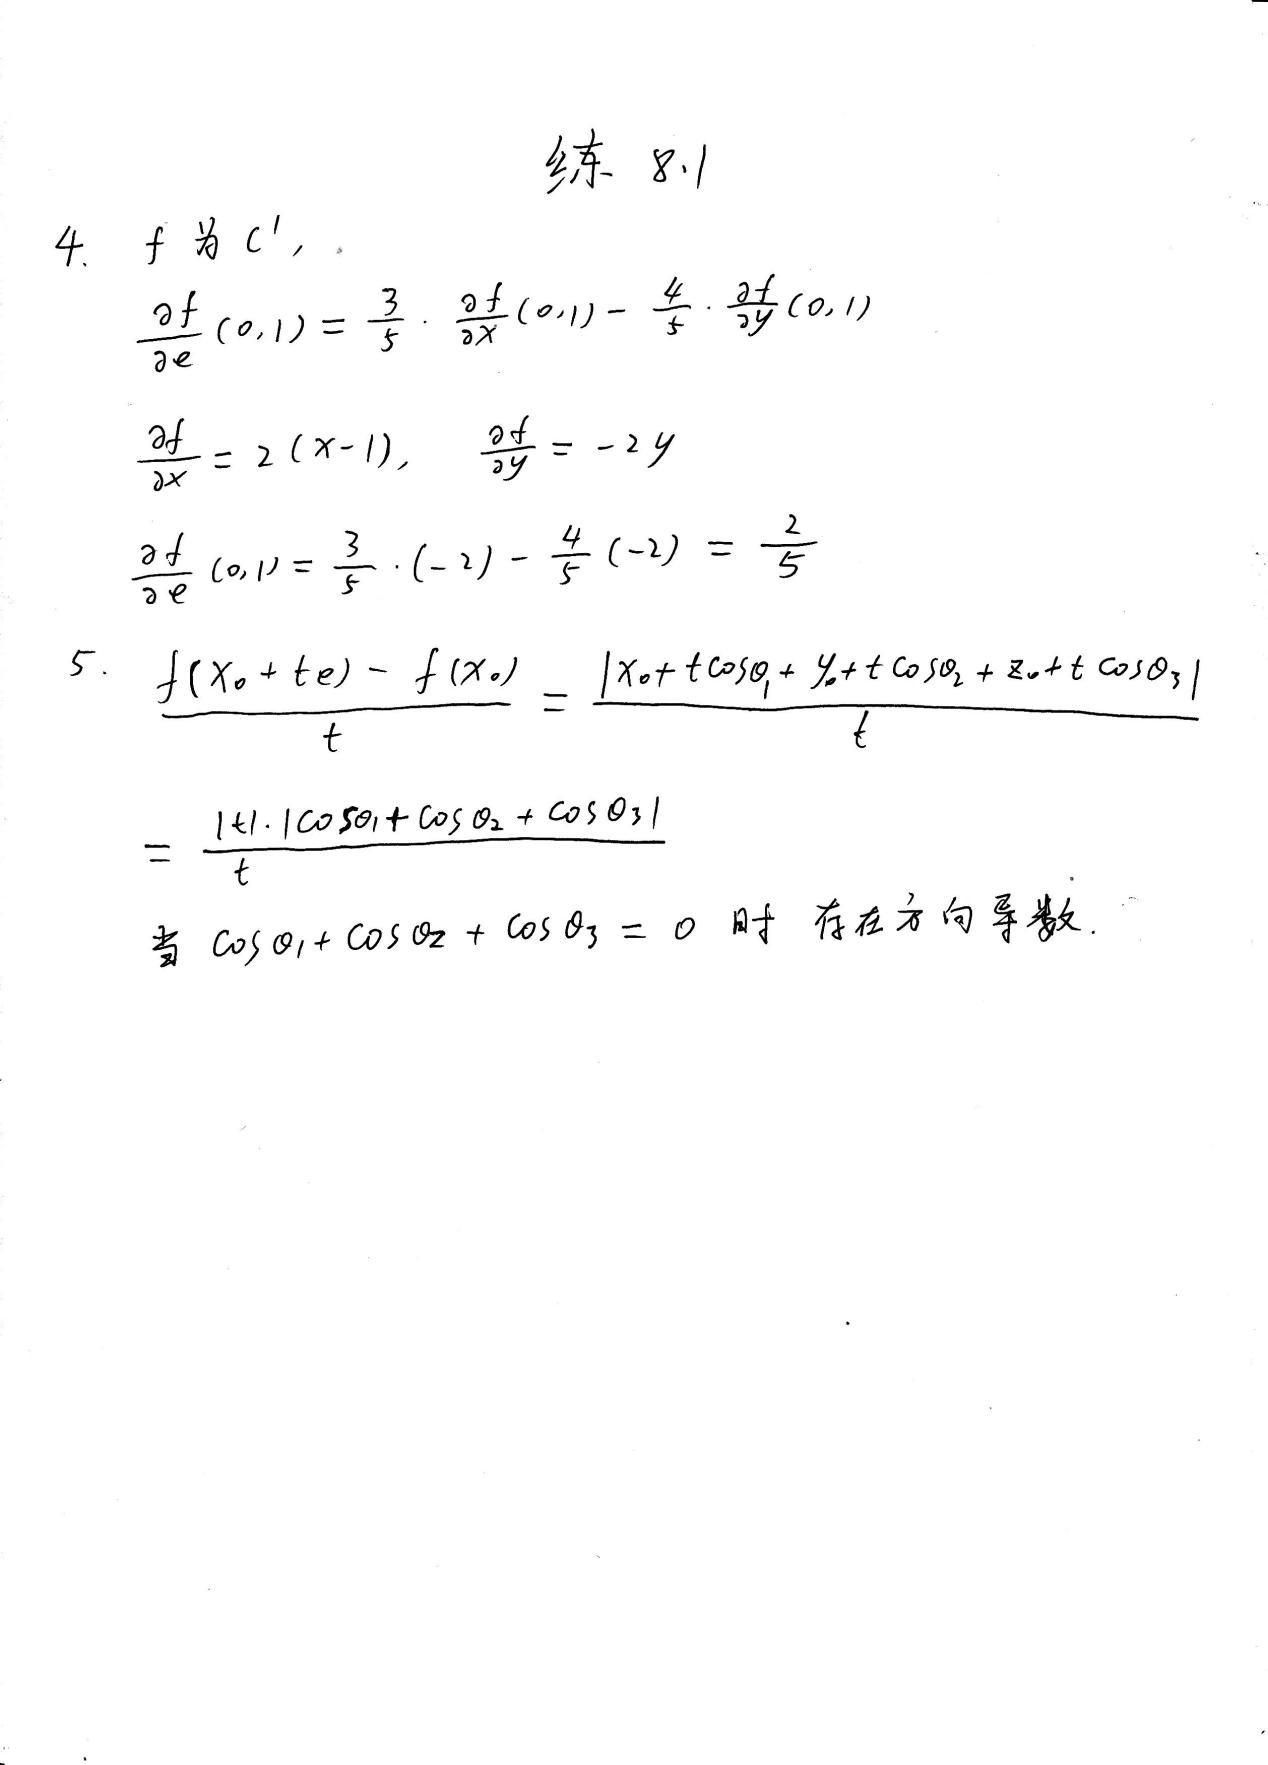 练 8.1
4. f 为 C¹,
∂f/∂e (0,1) = 3/5 · ∂f/∂x (0,1) - 4/5 · ∂f/∂y (0,1)
∂f/∂x = 2(x-1), ∂f/∂y = -2y
∂f/∂e (0,1) = 3/5 · (-2) - 4/5 (-2) = 2/5
5. (f(x₀+te) - f(x₀))/t = |x₀+tcosθ₁+y₀+tcosθ₂+z₀+tcosθ₃|/t
= |t|·|cosθ₁+cosθ₂+cosθ₃|/t
当 cosθ₁+cosθ₂+cosθ₃ = 0 时 存在方向导数.